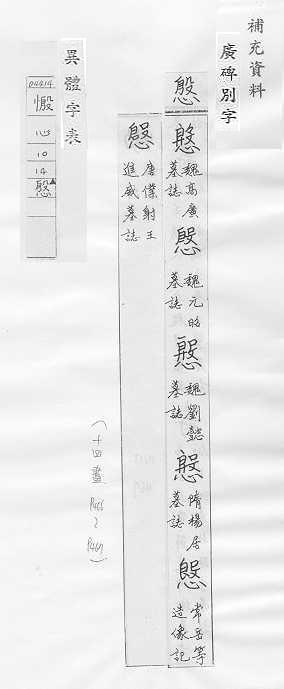 補充資料
廣碑別字
慇
慇 魏高廣墓誌
慇 魏元昭墓誌
慇 魏劉懿墓誌
慇 隋楊居墓誌
慇 常岳等造像記
慇 唐僕射王進威墓誌
(十四畫 P466~P467)
異體字表
04414
慇
心
10
14
慇